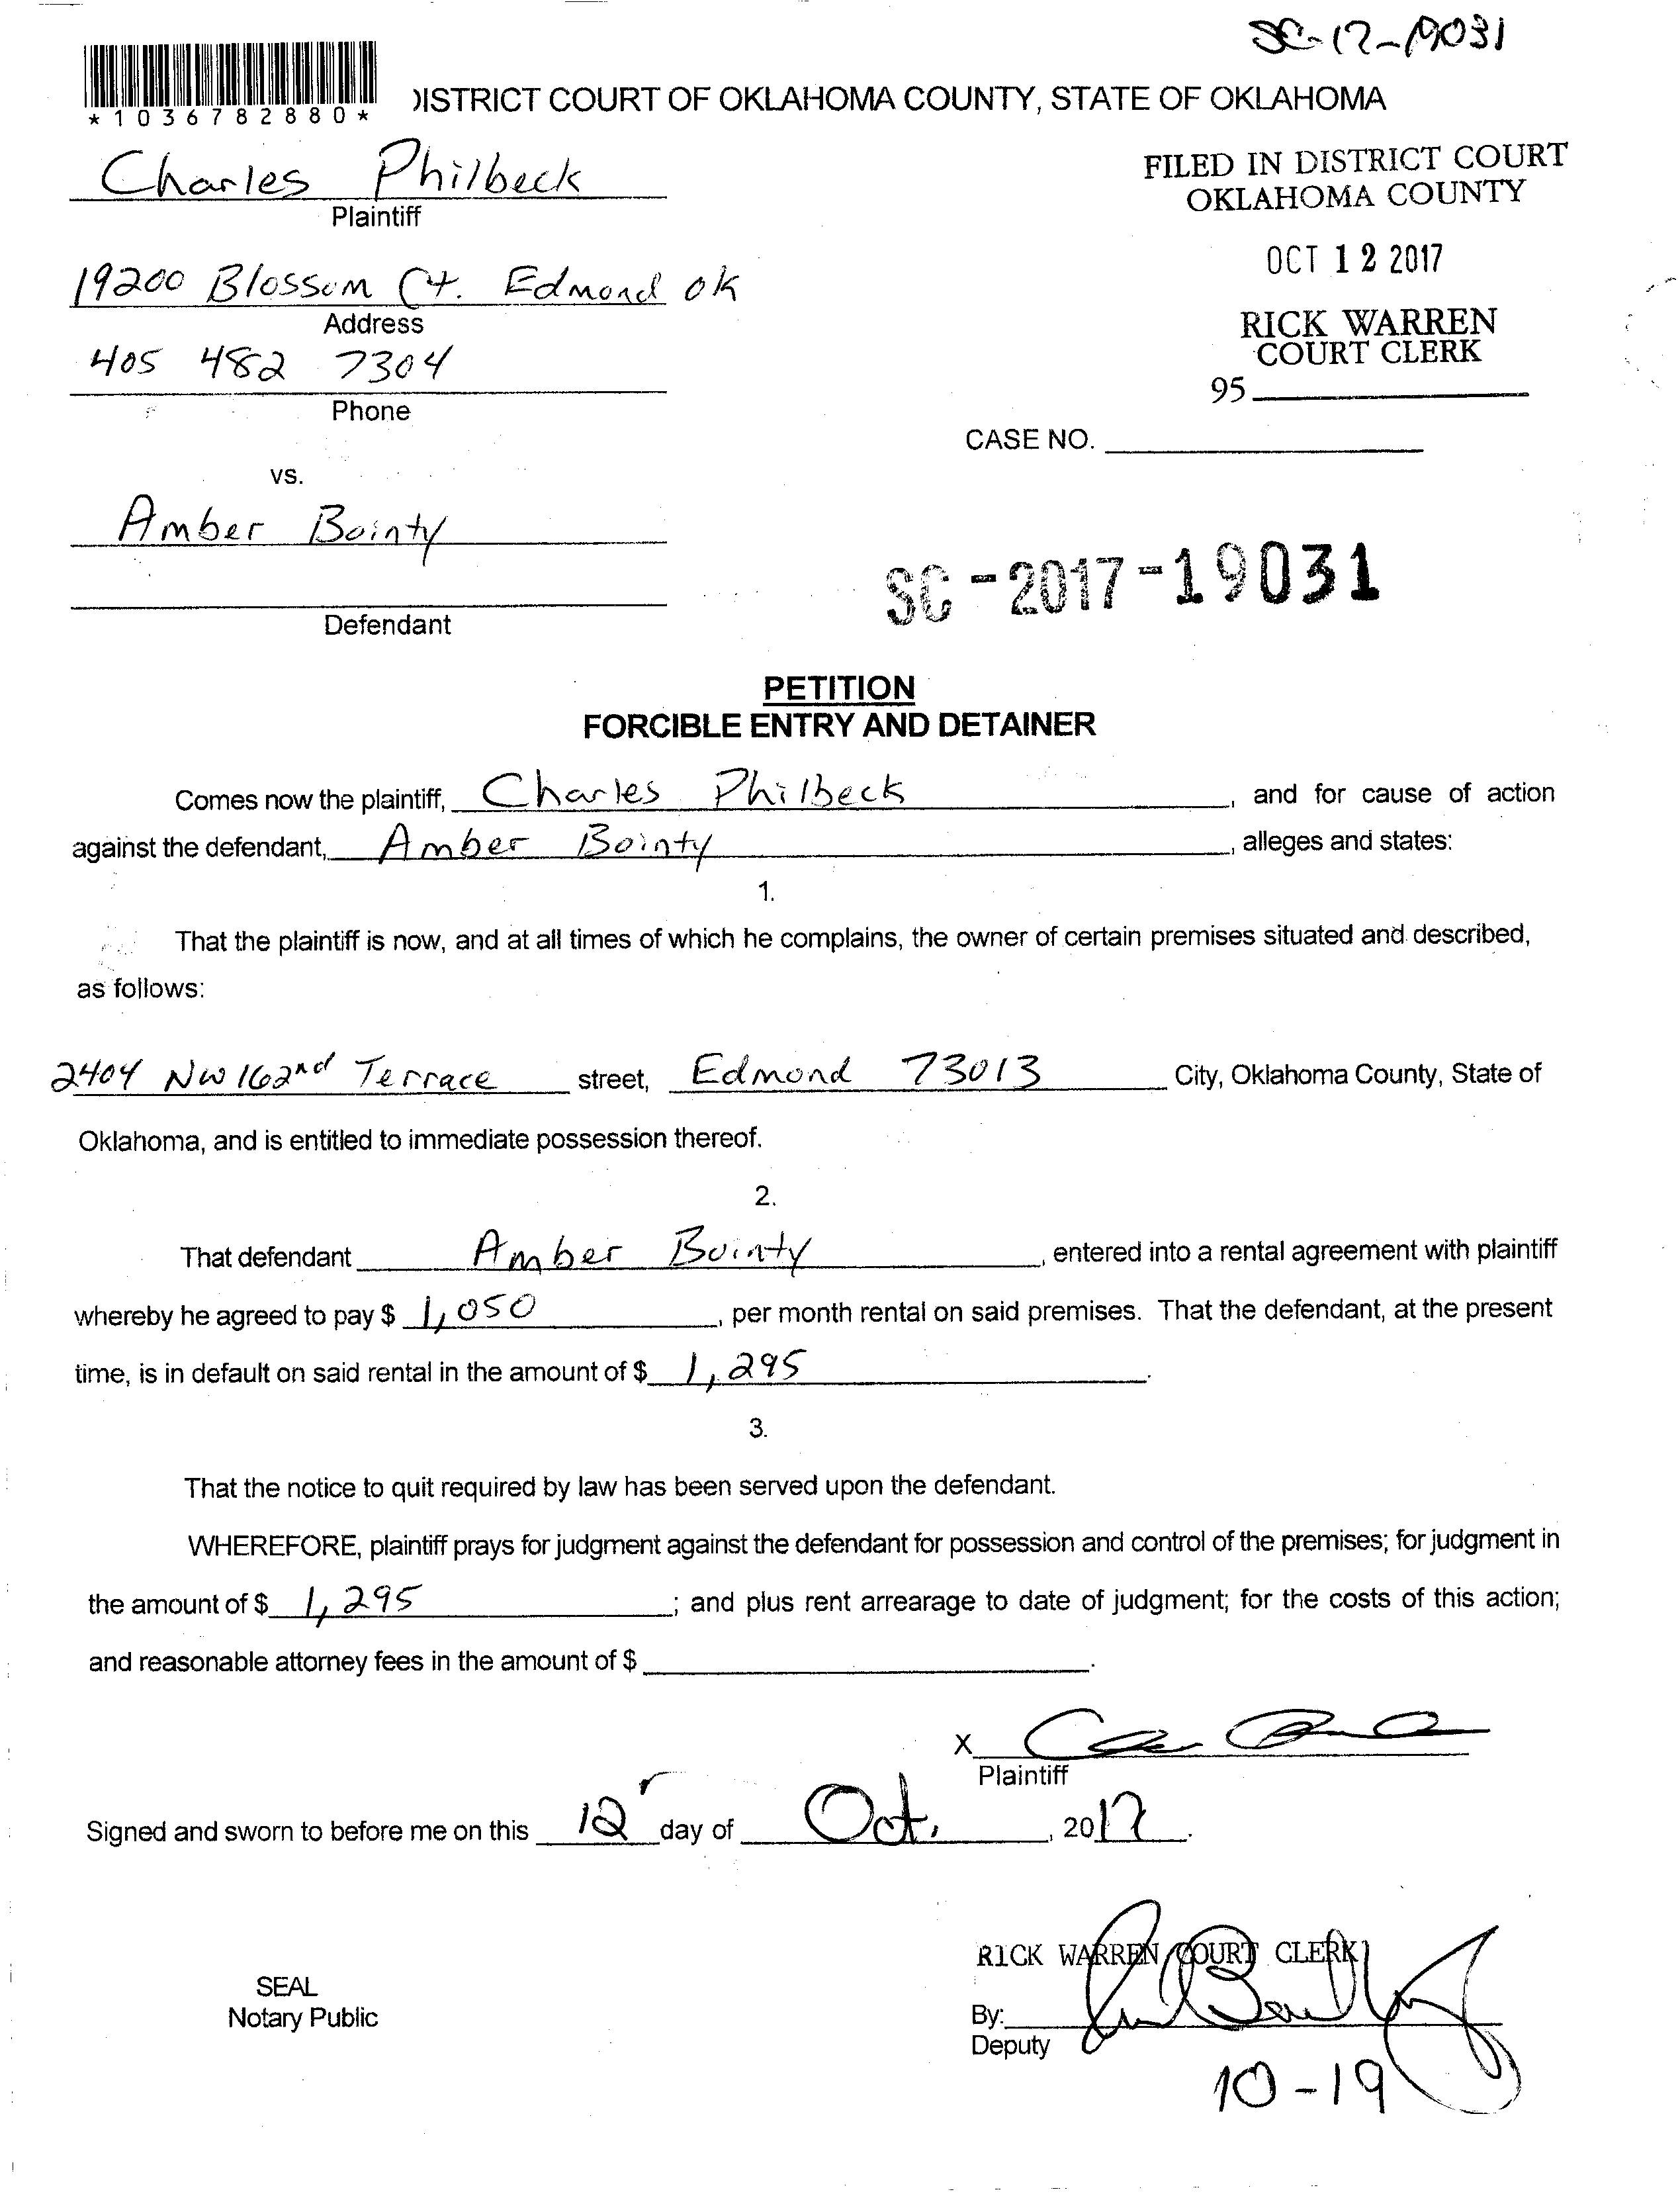 SC-17-19031
*1036782880*
DISTRICT COURT OF OKLAHOMA COUNTY, STATE OF OKLAHOMA
Charles Philbeck
Plaintiff
FILED IN DISTRICT COURT
OKLAHOMA COUNTY
OCT 12 2017
RICK WARREN
COURT CLERK
95
19200 Blossom Ct. Edmond OK
Address
405 482 7304
Phone
CASE NO.
vs.
Amber Bointy
Defendant
SC-2017-19031
PETITION
FORCIBLE ENTRY AND DETAINER
Comes now the plaintiff, Charles Philbeck, and for cause of action
against the defendant, Amber Bointy, alleges and states:
1.
That the plaintiff is now, and at all times of which he complains, the owner of certain premises situated and described,
as follows:
2404 NW 162nd Terrace street, Edmond 73013 City, Oklahoma County, State of
Oklahoma, and is entitled to immediate possession thereof.
2.
That defendant Amber Bointy, entered into a rental agreement with plaintiff
whereby he agreed to pay $ 1,050, per month rental on said premises. That the defendant, at the present
time, is in default on said rental in the amount of $ 1,295.
3.
That the notice to quit required by law has been served upon the defendant.
WHEREFORE, plaintiff prays for judgment against the defendant for possession and control of the premises; for judgment in
the amount of $ 1,295; and plus rent arrearage to date of judgment; for the costs of this action;
and reasonable attorney fees in the amount of $.
X
Plaintiff
Signed and sworn to before me on this 12 day of Oct., 2017.
RICK WARREN COURT CLERK
SEAL
Notary Public
By:
Deputy
10-19